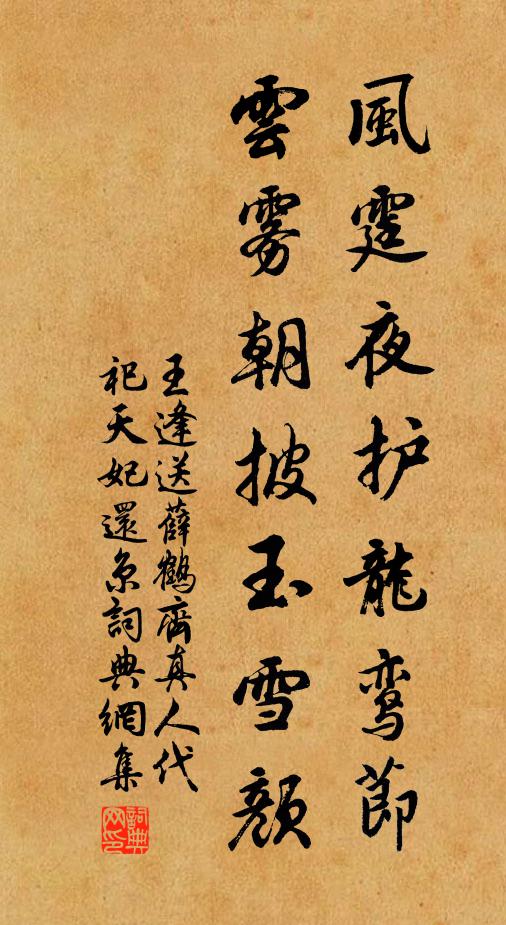 風霆夜护龍鸾節
雲雾朝披玉雪顔
王逢送薛鶴齋真人代
祀天妃還京詞典網集
詞典网印